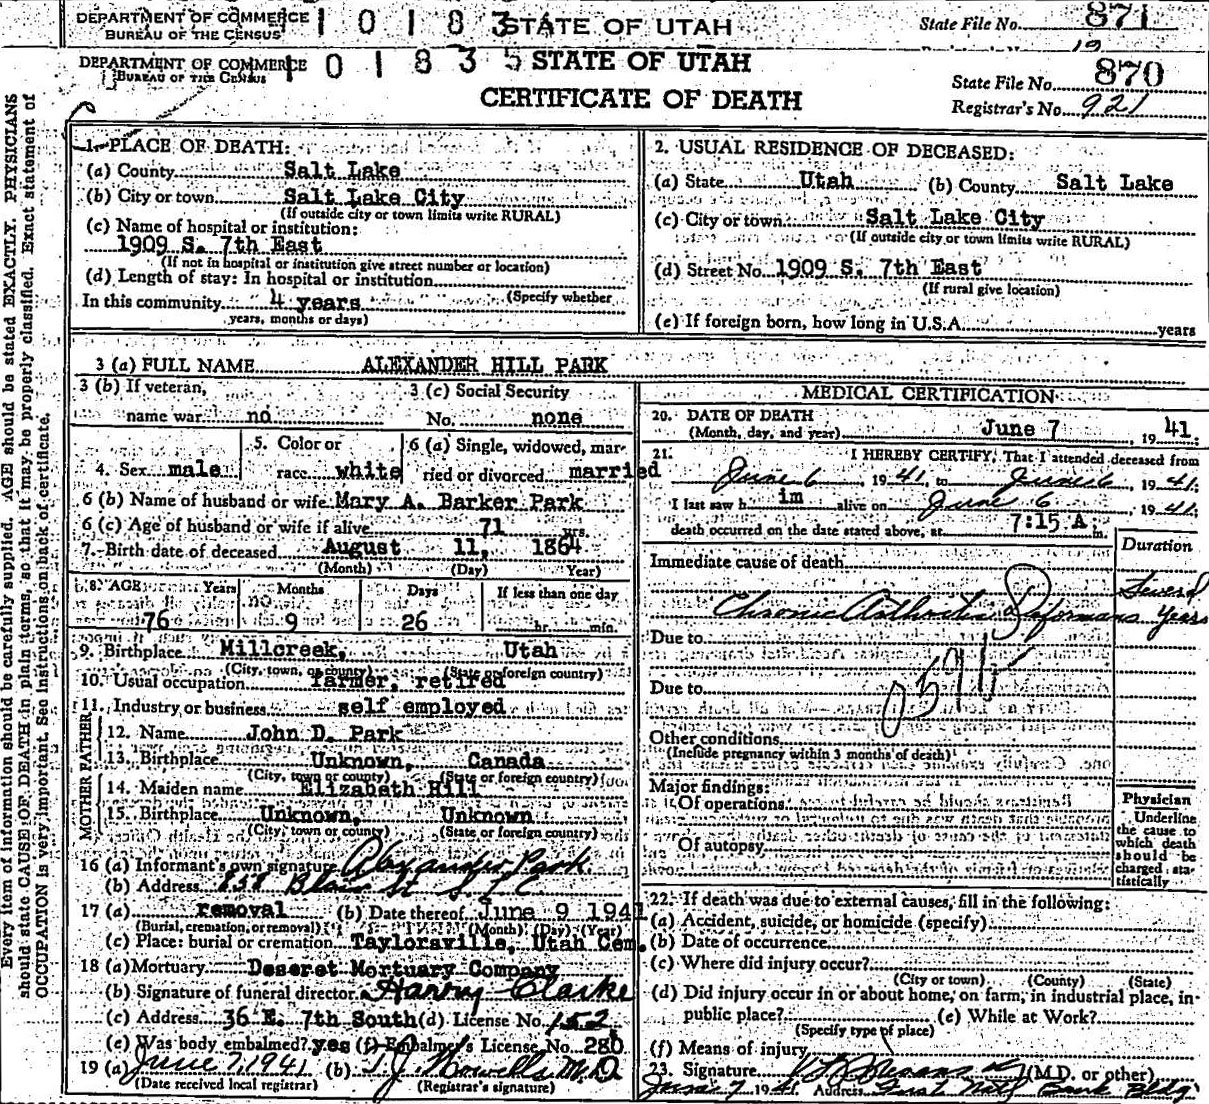 DEPARTMENT OF COMMERCE
BUREAU OF THE CENSUS
1 0 1 8 3
STATE OF UTAH
State File No. 871
DEPARTMENT OF COMMERCE
BUREAU OF THE CENSUS
1 0 1 8 3 5
STATE OF UTAH
CERTIFICATE OF DEATH
State File No. 870
Registrar's No. 921
Every item of information should be carefully supplied. AGE should be stated EXACTLY. PHYSICIANS
should state CAUSE OF DEATH in plain terms, so that it may be properly classified. Exact statement of
OCCUPATION is very important. See instructions on back of certificate.
1. PLACE OF DEATH:
(a) County Salt Lake
(b) City or town Salt Lake City
(If outside city or town limits write RURAL)
(c) Name of hospital or institution:
1909 S. 7th East
(If not in hospital or institution give street number or location)
(d) Length of stay: In hospital or institution
(Specify whether
In this community 4 years
years, months or days)
2. USUAL RESIDENCE OF DECEASED:
(a) State Utah (b) County Salt Lake
(c) City or town Salt Lake City
(If outside city or town limits write RURAL)
(d) Street No. 1909 S. 7th East
(If rural give location)
(e) If foreign born, how long in U.S.A. years
3 (a) FULL NAME ALEXANDER HILL PARK
3 (b) If veteran,
name war no
3 (c) Social Security
No. none
4. Sex male
5. Color or
race white
6 (a) Single, widowed, mar-
ried or divorced married
6 (b) Name of husband or wife Mary A. Barker Park
6 (c) Age of husband or wife if alive 71 yrs.
7. Birth date of deceased August 11, 1864
(Month) (Day) Year)
8. AGE Years Months Days If less than one day
76 9 26 hr. min.
9. Birthplace Millcreek, Utah
(City, town, or county) (State or foreign country)
10. Usual occupation farmer, retired
11. Industry or business self employed
FATHER
12. Name John D. Park
13. Birthplace Unknown, Canada
(City, town or county) (State or foreign country)
MOTHER
14. Maiden name Elizabeth Hill
15. Birthplace Unknown, Unknown
(City, town or county) (State or foreign country)
16 (a) Informant's own signature Alexander Park
(b) Address 838 Blair St S.L.C
17 (a) removal (b) Date thereof June 9 1941
(Burial, cremation, or removal) (Month) (Day) (Year)
(c) Place: burial or cremation Taylorsville, Utah Cem.
18 (a) Mortuary Deseret Mortuary Company
(b) Signature of funeral director Harry Clarke
(c) Address 36 E. 7th South (d) License No. 152
(e) Was body embalmed? yes (f) Embalmer's License No. 280
19 (a) June 7, 1941 (b) T J Howells M.D.
(Date received local registrar) (Registrar's signature)
MEDICAL CERTIFICATION
20. DATE OF DEATH
(Month, day, and year) June 7, 1941
21. I HEREBY CERTIFY, That I attended deceased from
June 6, 1941, to June 6, 1941
I last saw him alive on June 6, 1941
death occurred on the date stated above, at 7:15 A. m.
Duration
Immediate cause of death
Chronic Arthritis Deformans
Several
Years
Due to
Due to
Other conditions
(Include pregnancy within 3 months of death)
Major findings:
Of operations
Of autopsy
Physician
Underline
the cause to
which death
should be
charged sta-
tistically
22. If death was due to external causes, fill in the following:
(a) Accident, suicide, or homicide (specify)
(b) Date of occurrence
(c) Where did injury occur?
(City or town) (County) (State)
(d) Did injury occur in or about home, on farm, in industrial place, in-
public place? (e) While at Work?
(Specify type of place)
(f) Means of injury
23. Signature (M.D. or other)
June 7 1941 Address First Natl Bank Bldg